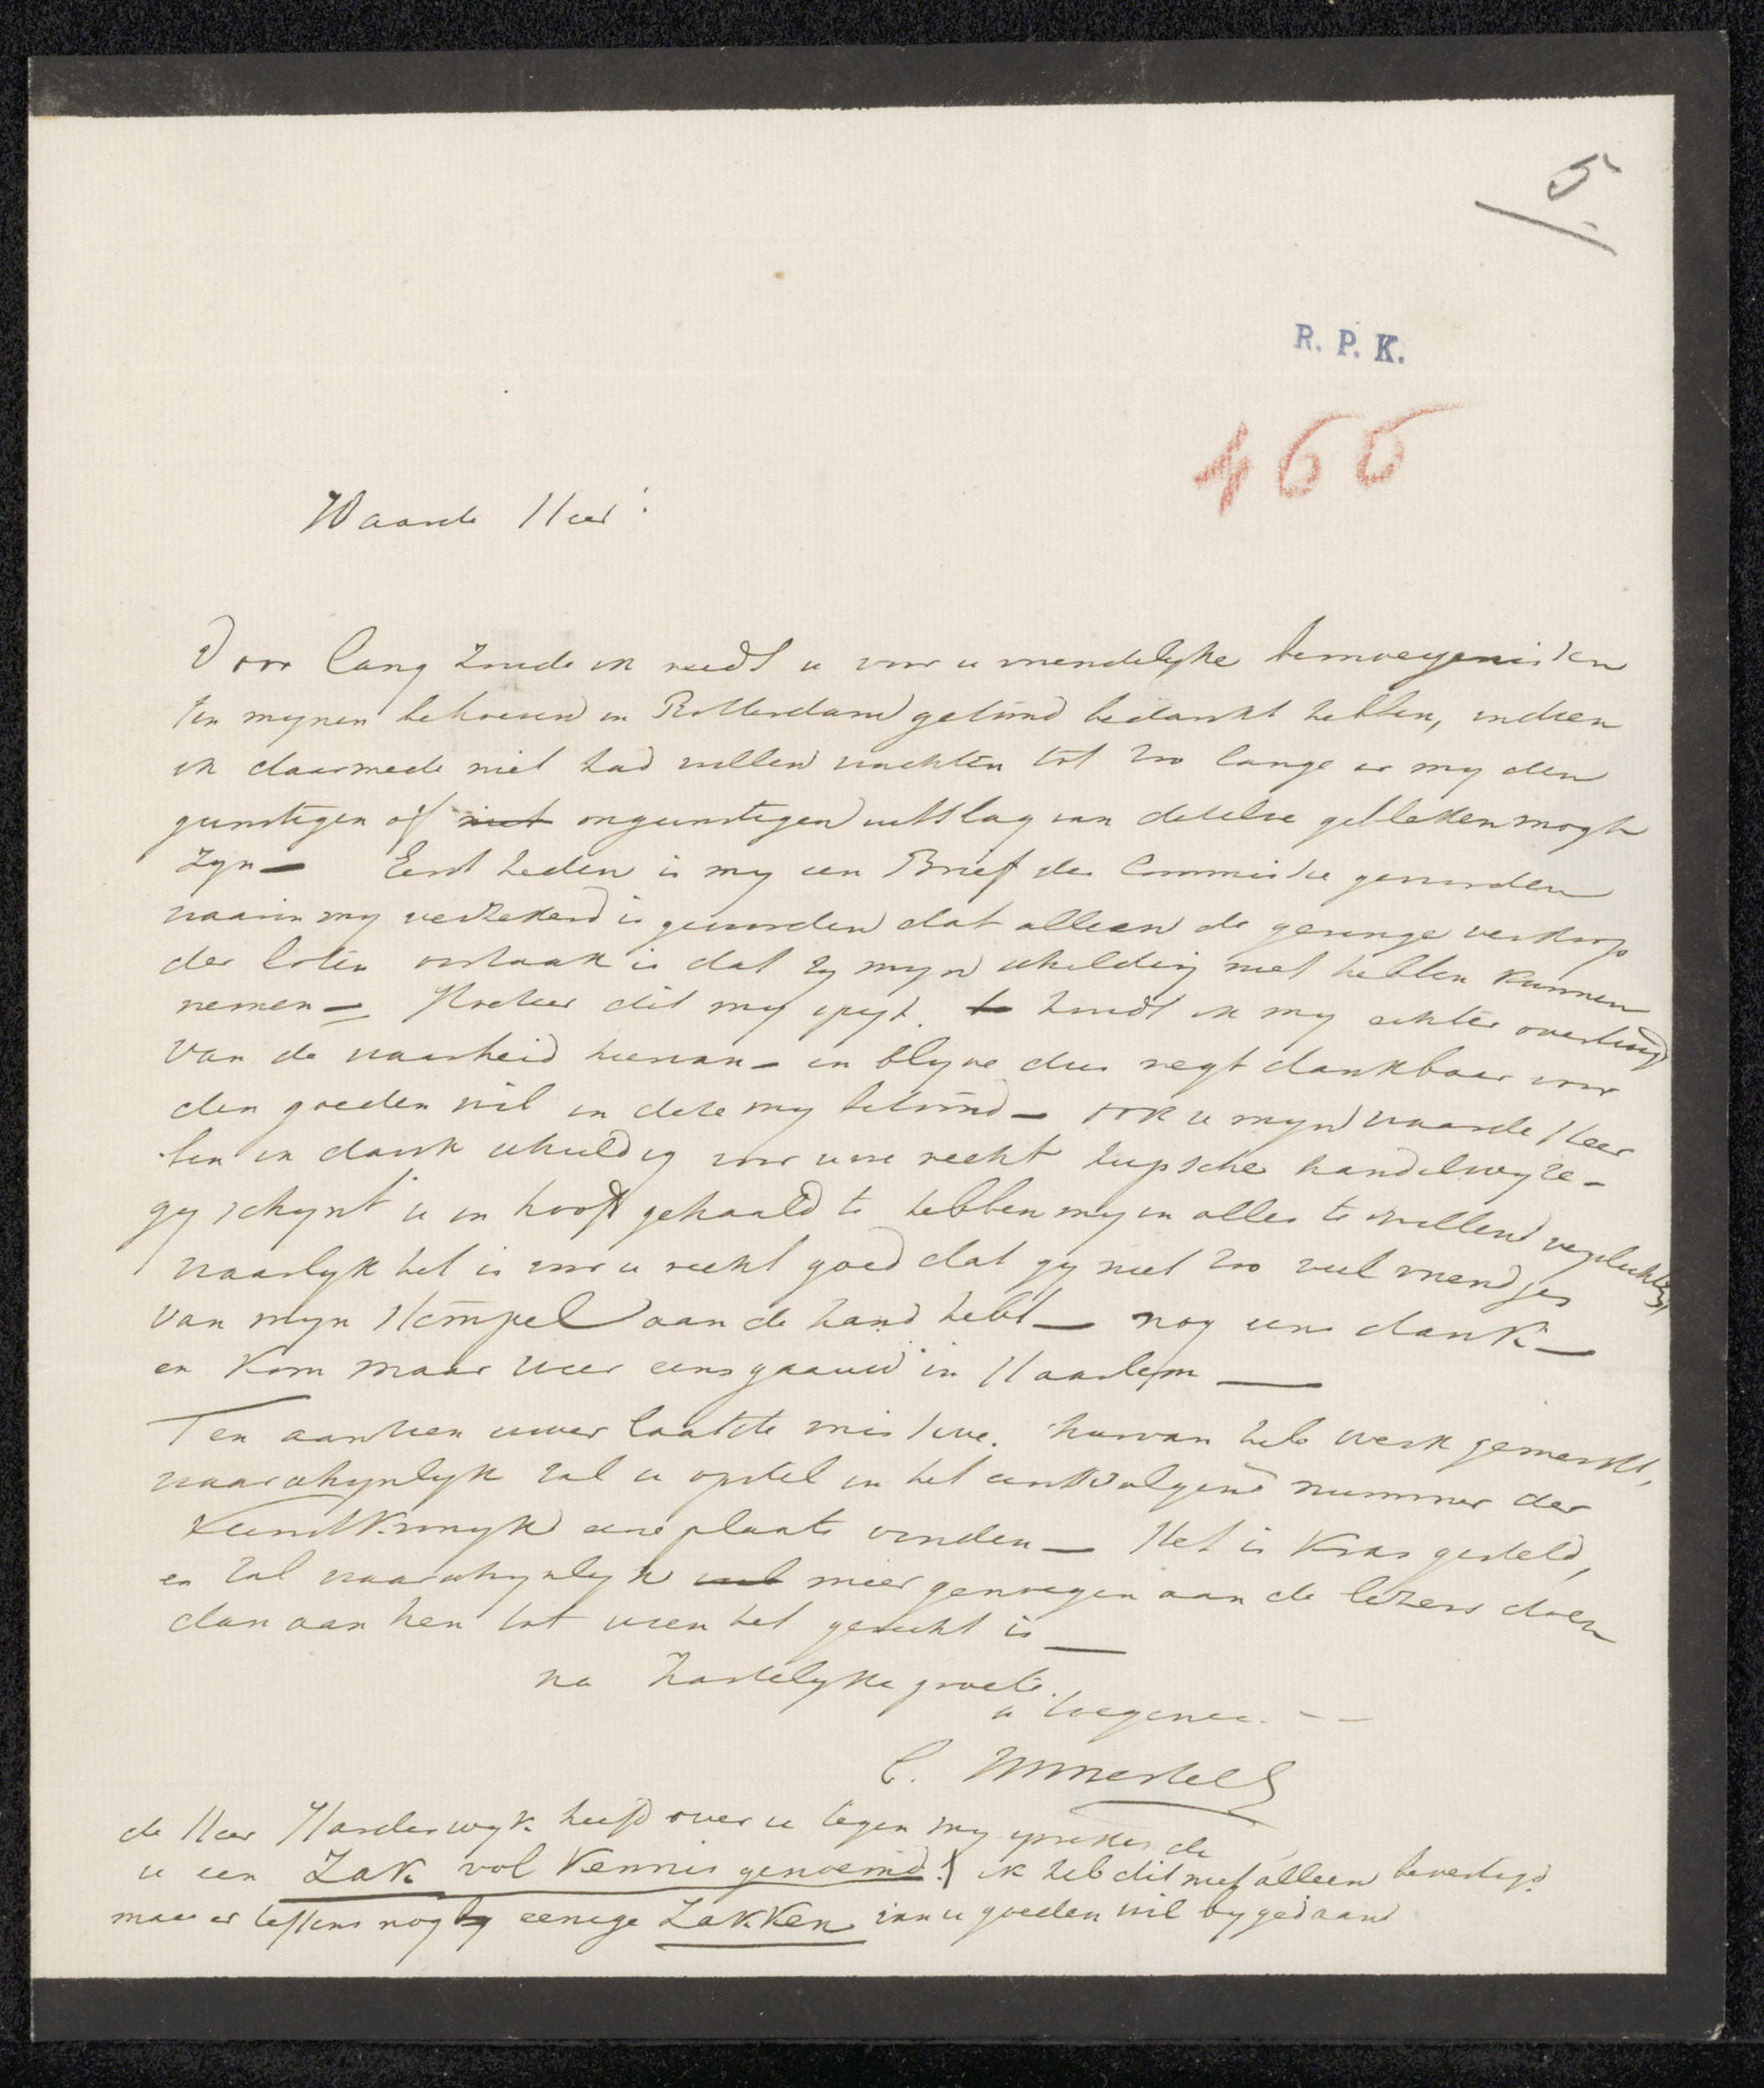 5
R. P. K.
466
Waarde Heer!
Voor lang zoude ik reedts u voor u vriendelyke bemoeyenissen
ten mynen behoeven in Rotterdam getoond bedankt hebben, indien
ik daarmede niet had willen wachten tot zoo lange er my den
gunstigen of niet ongunstigen uitslag van dezelve gebleken mogte
zyn — Eerst heden is my een Brief der Commissie geworden
waarin my verzekerd is geworden dat alleen de geringe verkoop
der loten oorzaak is dat zy myn schildery niet hebben kunnen
nemen — Hoezeer dit my spyt. houdt ik my echter overtuigd
van de waarheid hiervan — en blyve dus regt dankbaar voor
den goeden wil in deze my betoond — ook u myn waarde Heer
ben ik dank schuldig voor uwe recht heepsche handelwyze —
gy schynt u in hooft gehaald te hebben my in alles te willen
waarlyk het is voor u recht goed dat gy niet zoo veel vriendjes
van myn Stempel aan de hand hebt — nog eens dank —
en kom maar weer eens gaauw in Haarlem —
Ten aanzien uwer laatste missive. hiervan heb werk gemaakt,
waarschynlyk zal u opstel in het eerstvolgend nummer der
Kunstkronyk eene plaats vinden — Het is kras gesteld,
en zal waarschynlyk wel meer genoegen aan de lezers doen
dan aan hen tot wien het gericht is —
na hartelyke groete.
u toegenee. — —
C. Immerzeel
de Heer Harderwyk heeft over u tegen my sprekende
u een Zak vol kennis genoemd! ik heb dit niet alleen bevestigd
maar er teffens nog by eenige Zakken van u goeden wil by gedaan